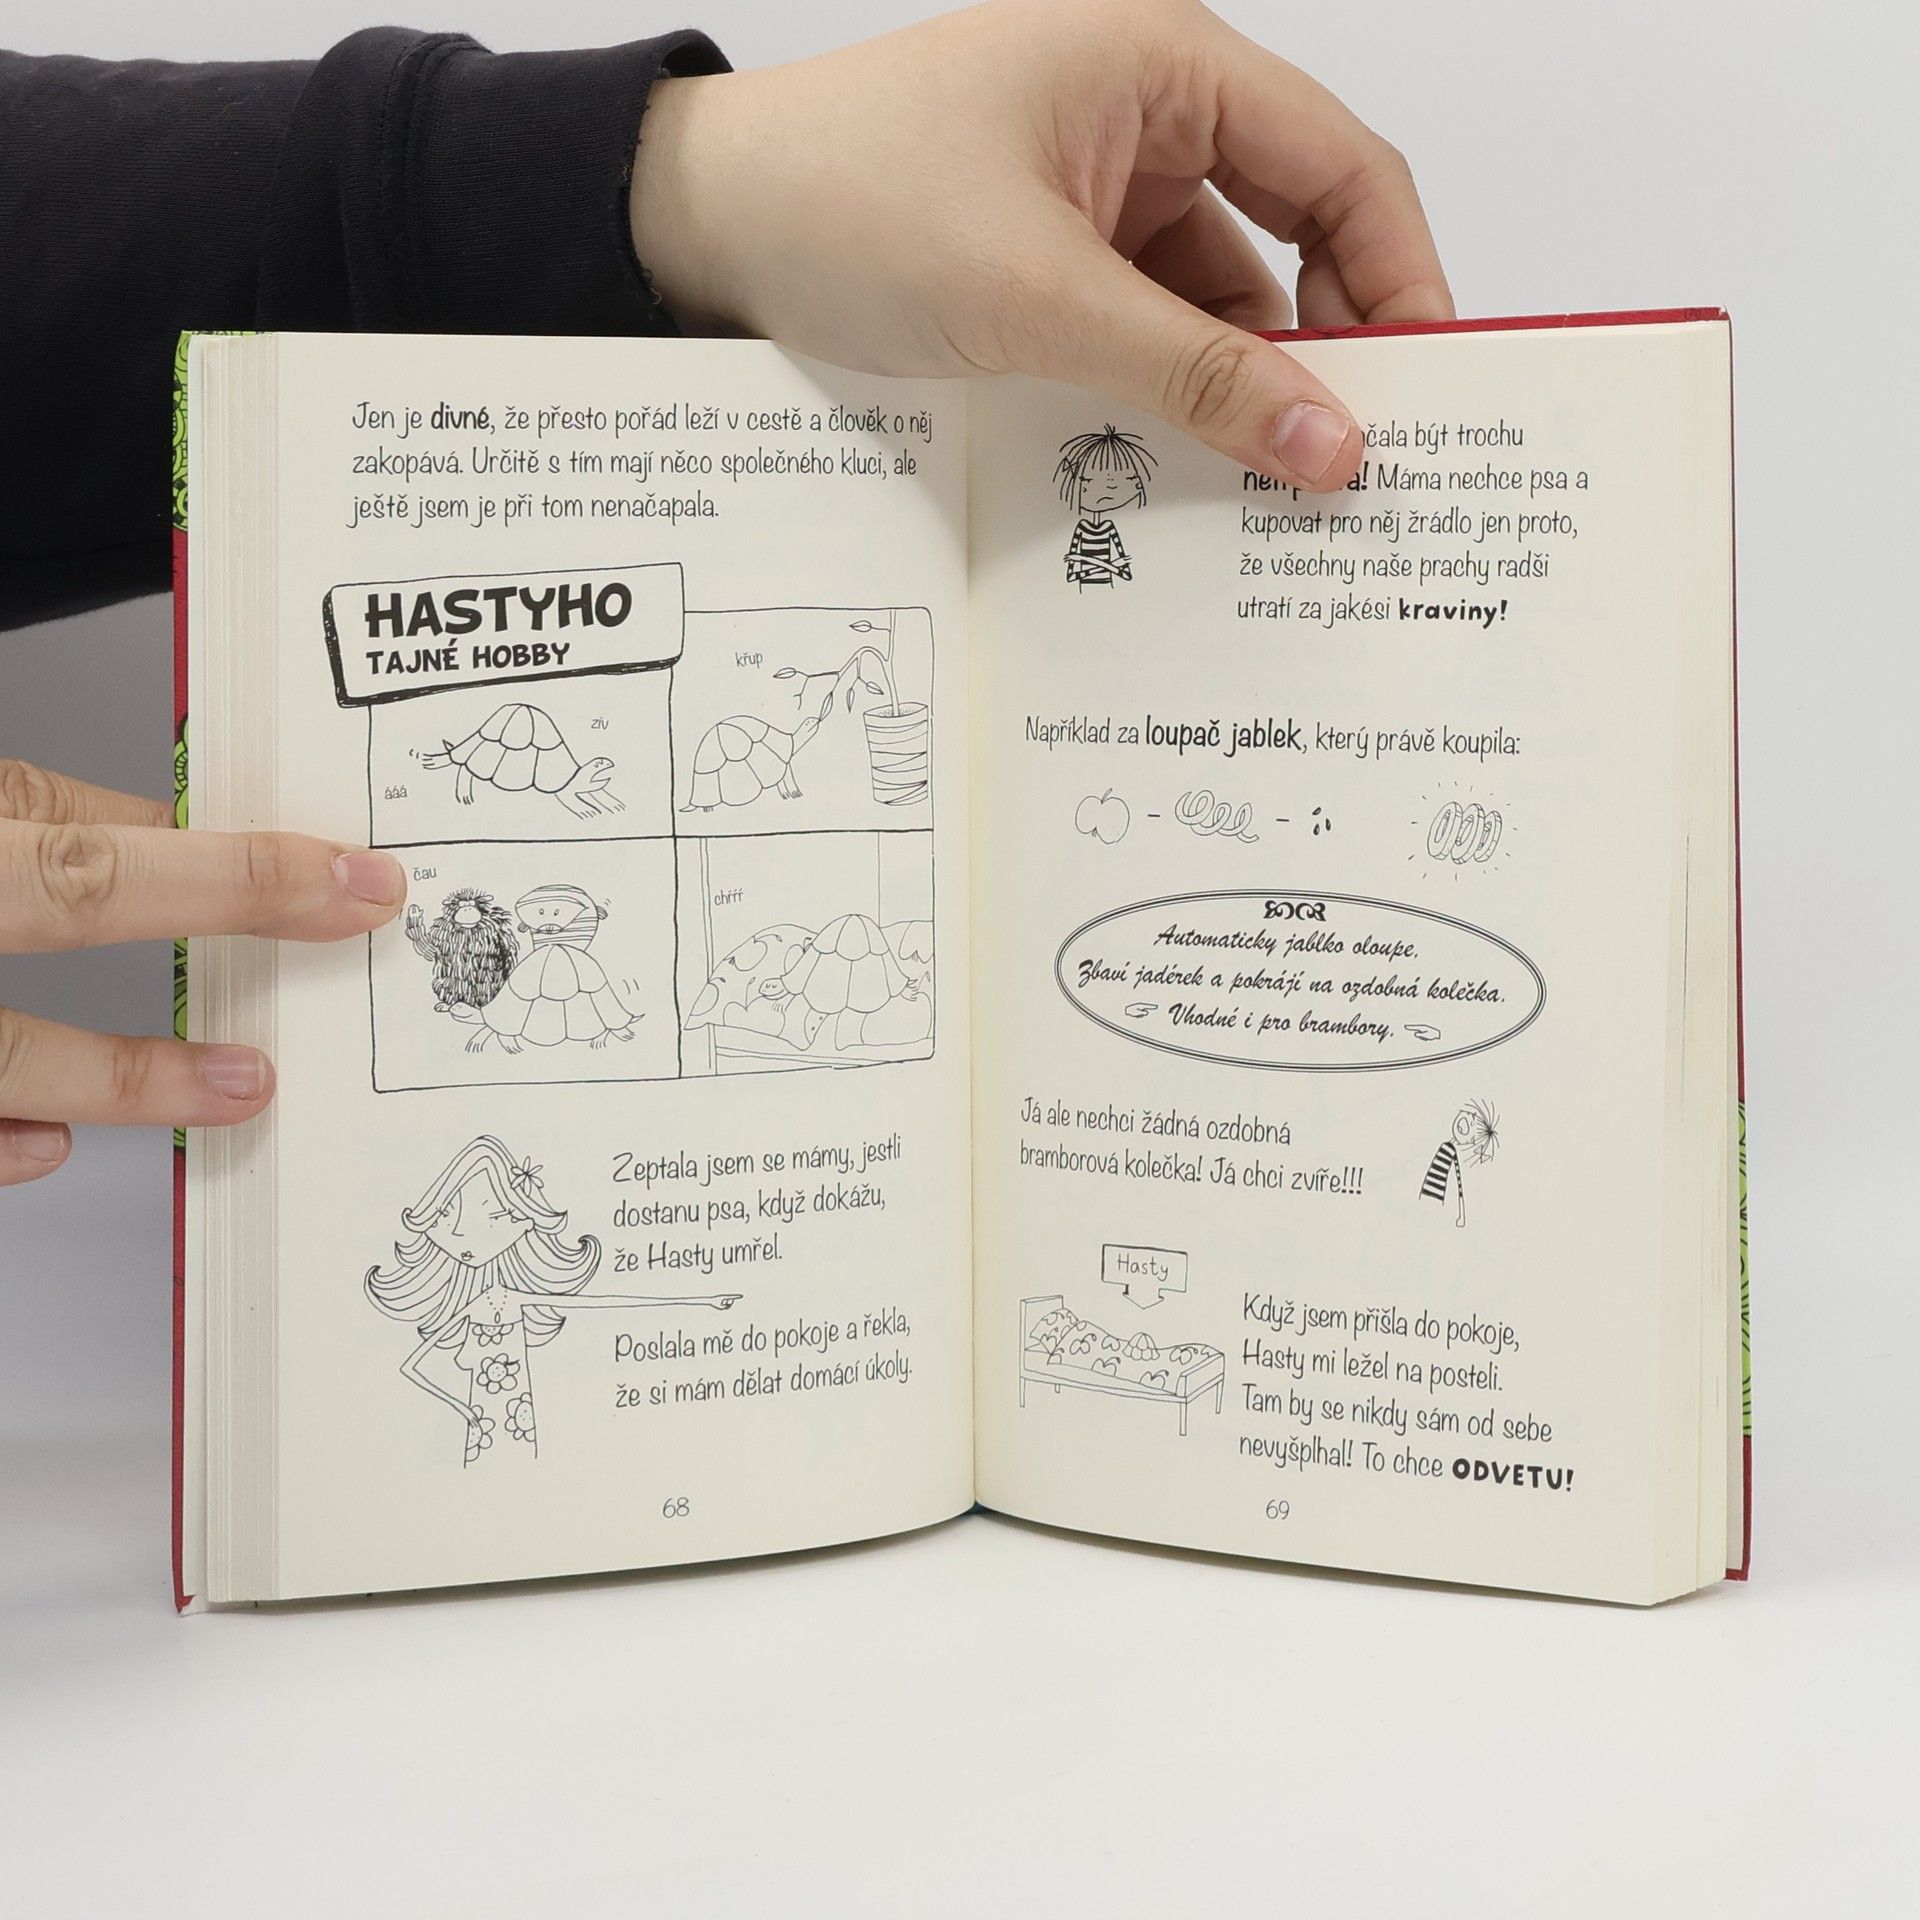 Jen je divné, že přesto pořád leží v cestě a člověk o něj
zakopává. Určitě s tím mají něco společného kluci, ale
ještě jsem je při tom nenačapala.
HASTYHO
TAJNÉ HOBBY
zív
ááá
křup
čau
chŕŕŕ
Zeptala jsem se mámy, jestli
dostanu psa, když dokážu,
že Hasty umřel.
Poslala mě do pokoje a řekla,
že si mám dělat domácí úkoly.
68
být trochu
Máma nechce psa a
kupovat pro něj žrádlo jen proto,
že všechny naše prachy radši
utratí za jakési kraviny!
Například za loupač jablek, který právě koupila:
Automaticky jablko oloupe.
Zbaví jadérek a pokrájí na ozdobná kolečka.
Vhodné i pro brambory.
Já ale nechci žádná ozdobná
bramborová kolečka! Já chci zvíře!!!
Hasty
Když jsem přišla do pokoje,
Hasty mi ležel na posteli.
Tam by se nikdy sám od sebe
nevyšplhal! To chce ODVETU!
69